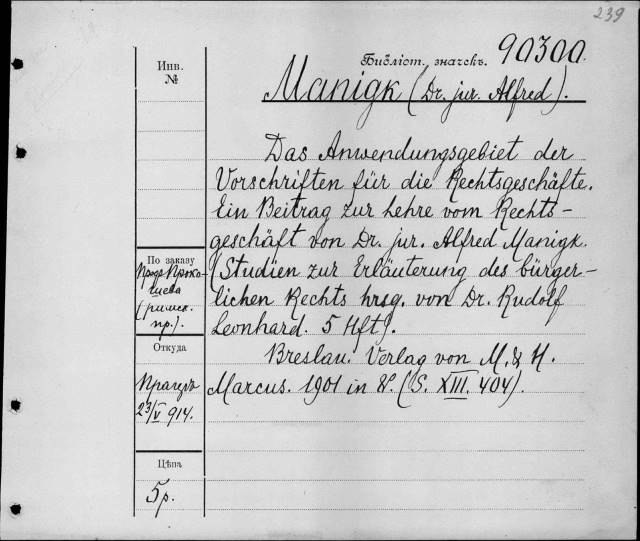 239
Библіот. значекъ. 90300.
Инв.
№
Manigk (Dr. jur. Alfred).
Das Anwendungsgebiet der
Vorschriften für die Rechtsgeschäfte.
Ein Beitrag zur Lehre vom Rechts-
geschäft von Dr. jur. Alfred Manigk.
(Studien zur Erläuterung des bürger-
lichen Rechts hrsg. von Dr. Rudolf
Leonhard. 5 Hft).
Breslau. Verlag von M. & H.
Marcus. 1901 in 8°. (S. XIII. 404).
По заказу
Проф. Проко-
шева
(римск.
пр.).
Откуда
23/V 914.
Цѣна
5 р.